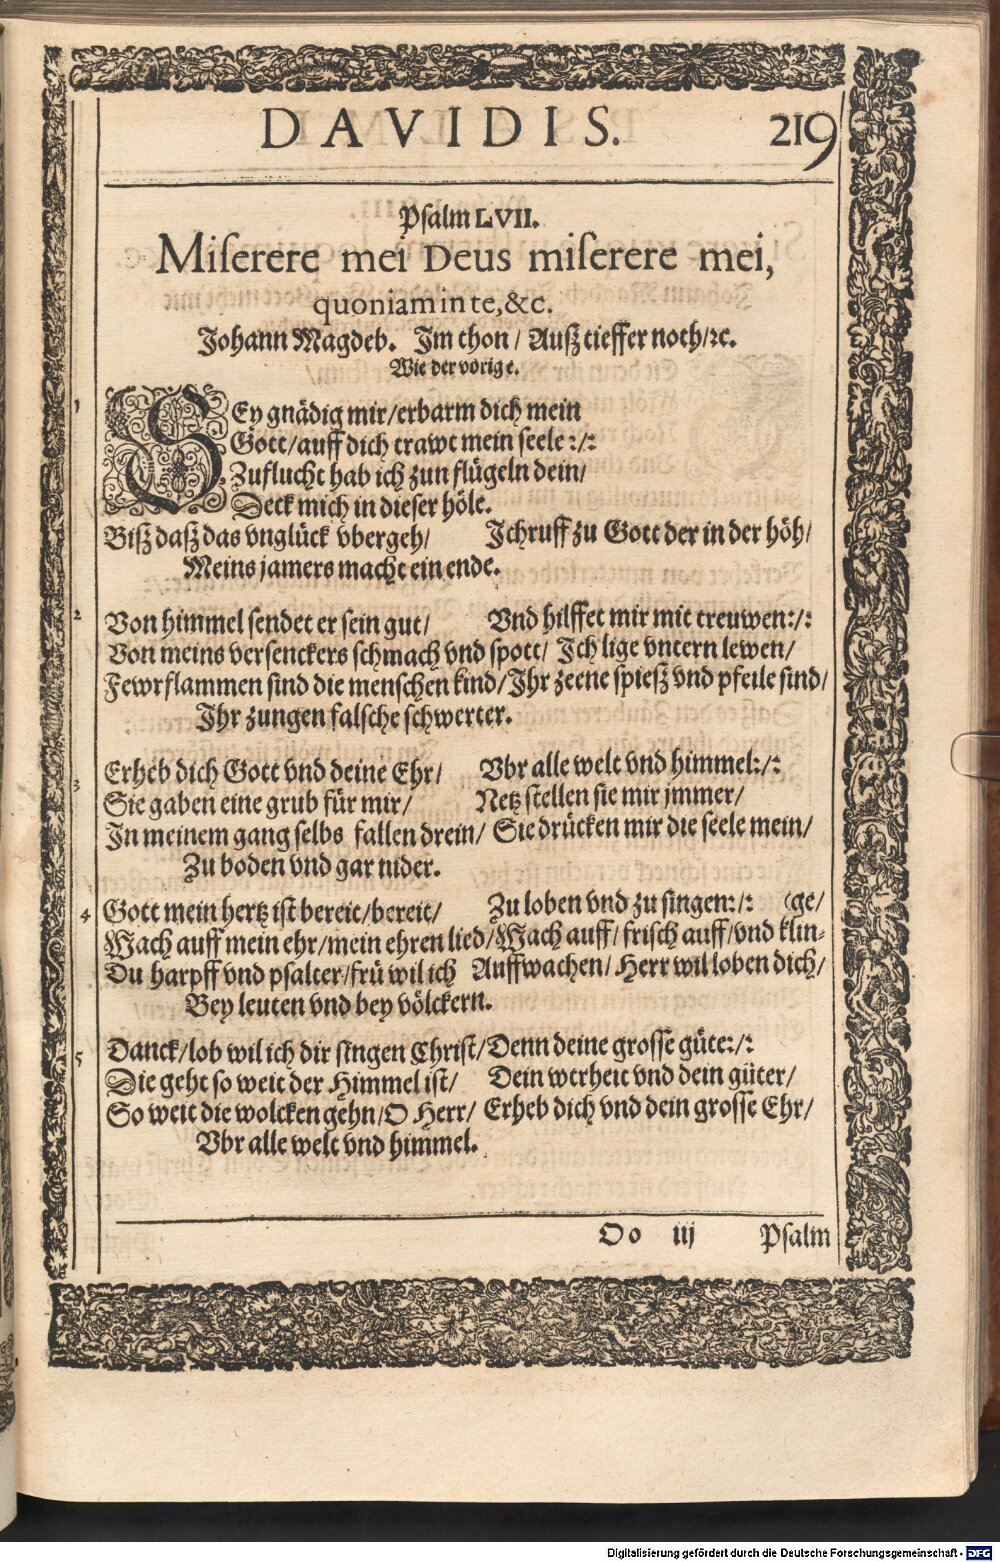 DAVIDIS. 219
Psalm LVII.
Miserere mei Deus miserere mei,
quoniam in te, &c.
Johann Magdeb. Im thon / Auß tieffer noth / ꝛc.
Wie der vorige.
1 SEy gnädig mir / erbarm dich mein
Gott / auff dich trawt mein seele :/:
Zuflucht hab ich zun flügeln dein /
Deck mich in dieser höle.
Biß daß das vnglück vbergeh / Ich ruff zu Gott der in der höh /
Meins jamers macht ein ende.
2 Von himmel sendet er sein gut / Vnd hilffet mir mit treuwen :/:
Von meins versenckers schmach vnd spott / Ich lige vntern lewen /
Fewrflammen sind die menschen kind / Ihr zeene spieß vnd pfeile sind /
Ihr zungen falsche schwerter.
3 Erheb dich Gott vnd deine Ehr / Vbr alle welt vnd himmel :/:
Sie gaben eine grub für mir / Netz stellen sie mir jmmer /
In meinem gang selbs fallen drein / Sie drücken mir die seele mein /
Zu boden vnd gar nider.
4 Gott mein hertz ist bereit / bereit / Zu loben vnd zu singen :/: (ge /
Wach auff mein ehr / mein ehren lied / Wach auff / frisch auff / vnd klin-
Du harpff vnd psalter / frü wil ich Auffwachen / Herr wil loben dich /
Bey leuten vnd bey völckern.
5 Danck / lob wil ich dir singen Christ / Denn deine grosse güte :/:
Die geht so weit der Himmel ist / Dein wtrheit vnd dein güter /
So weit die wolcken gehn / O Herr / Erheb dich vnd dein grosse Ehr /
Vbr alle welt vnd himmel.
Oo iij Psalm
Digitalisierung gefördert durch die Deutsche Forschungsgemeinschaft - DFG